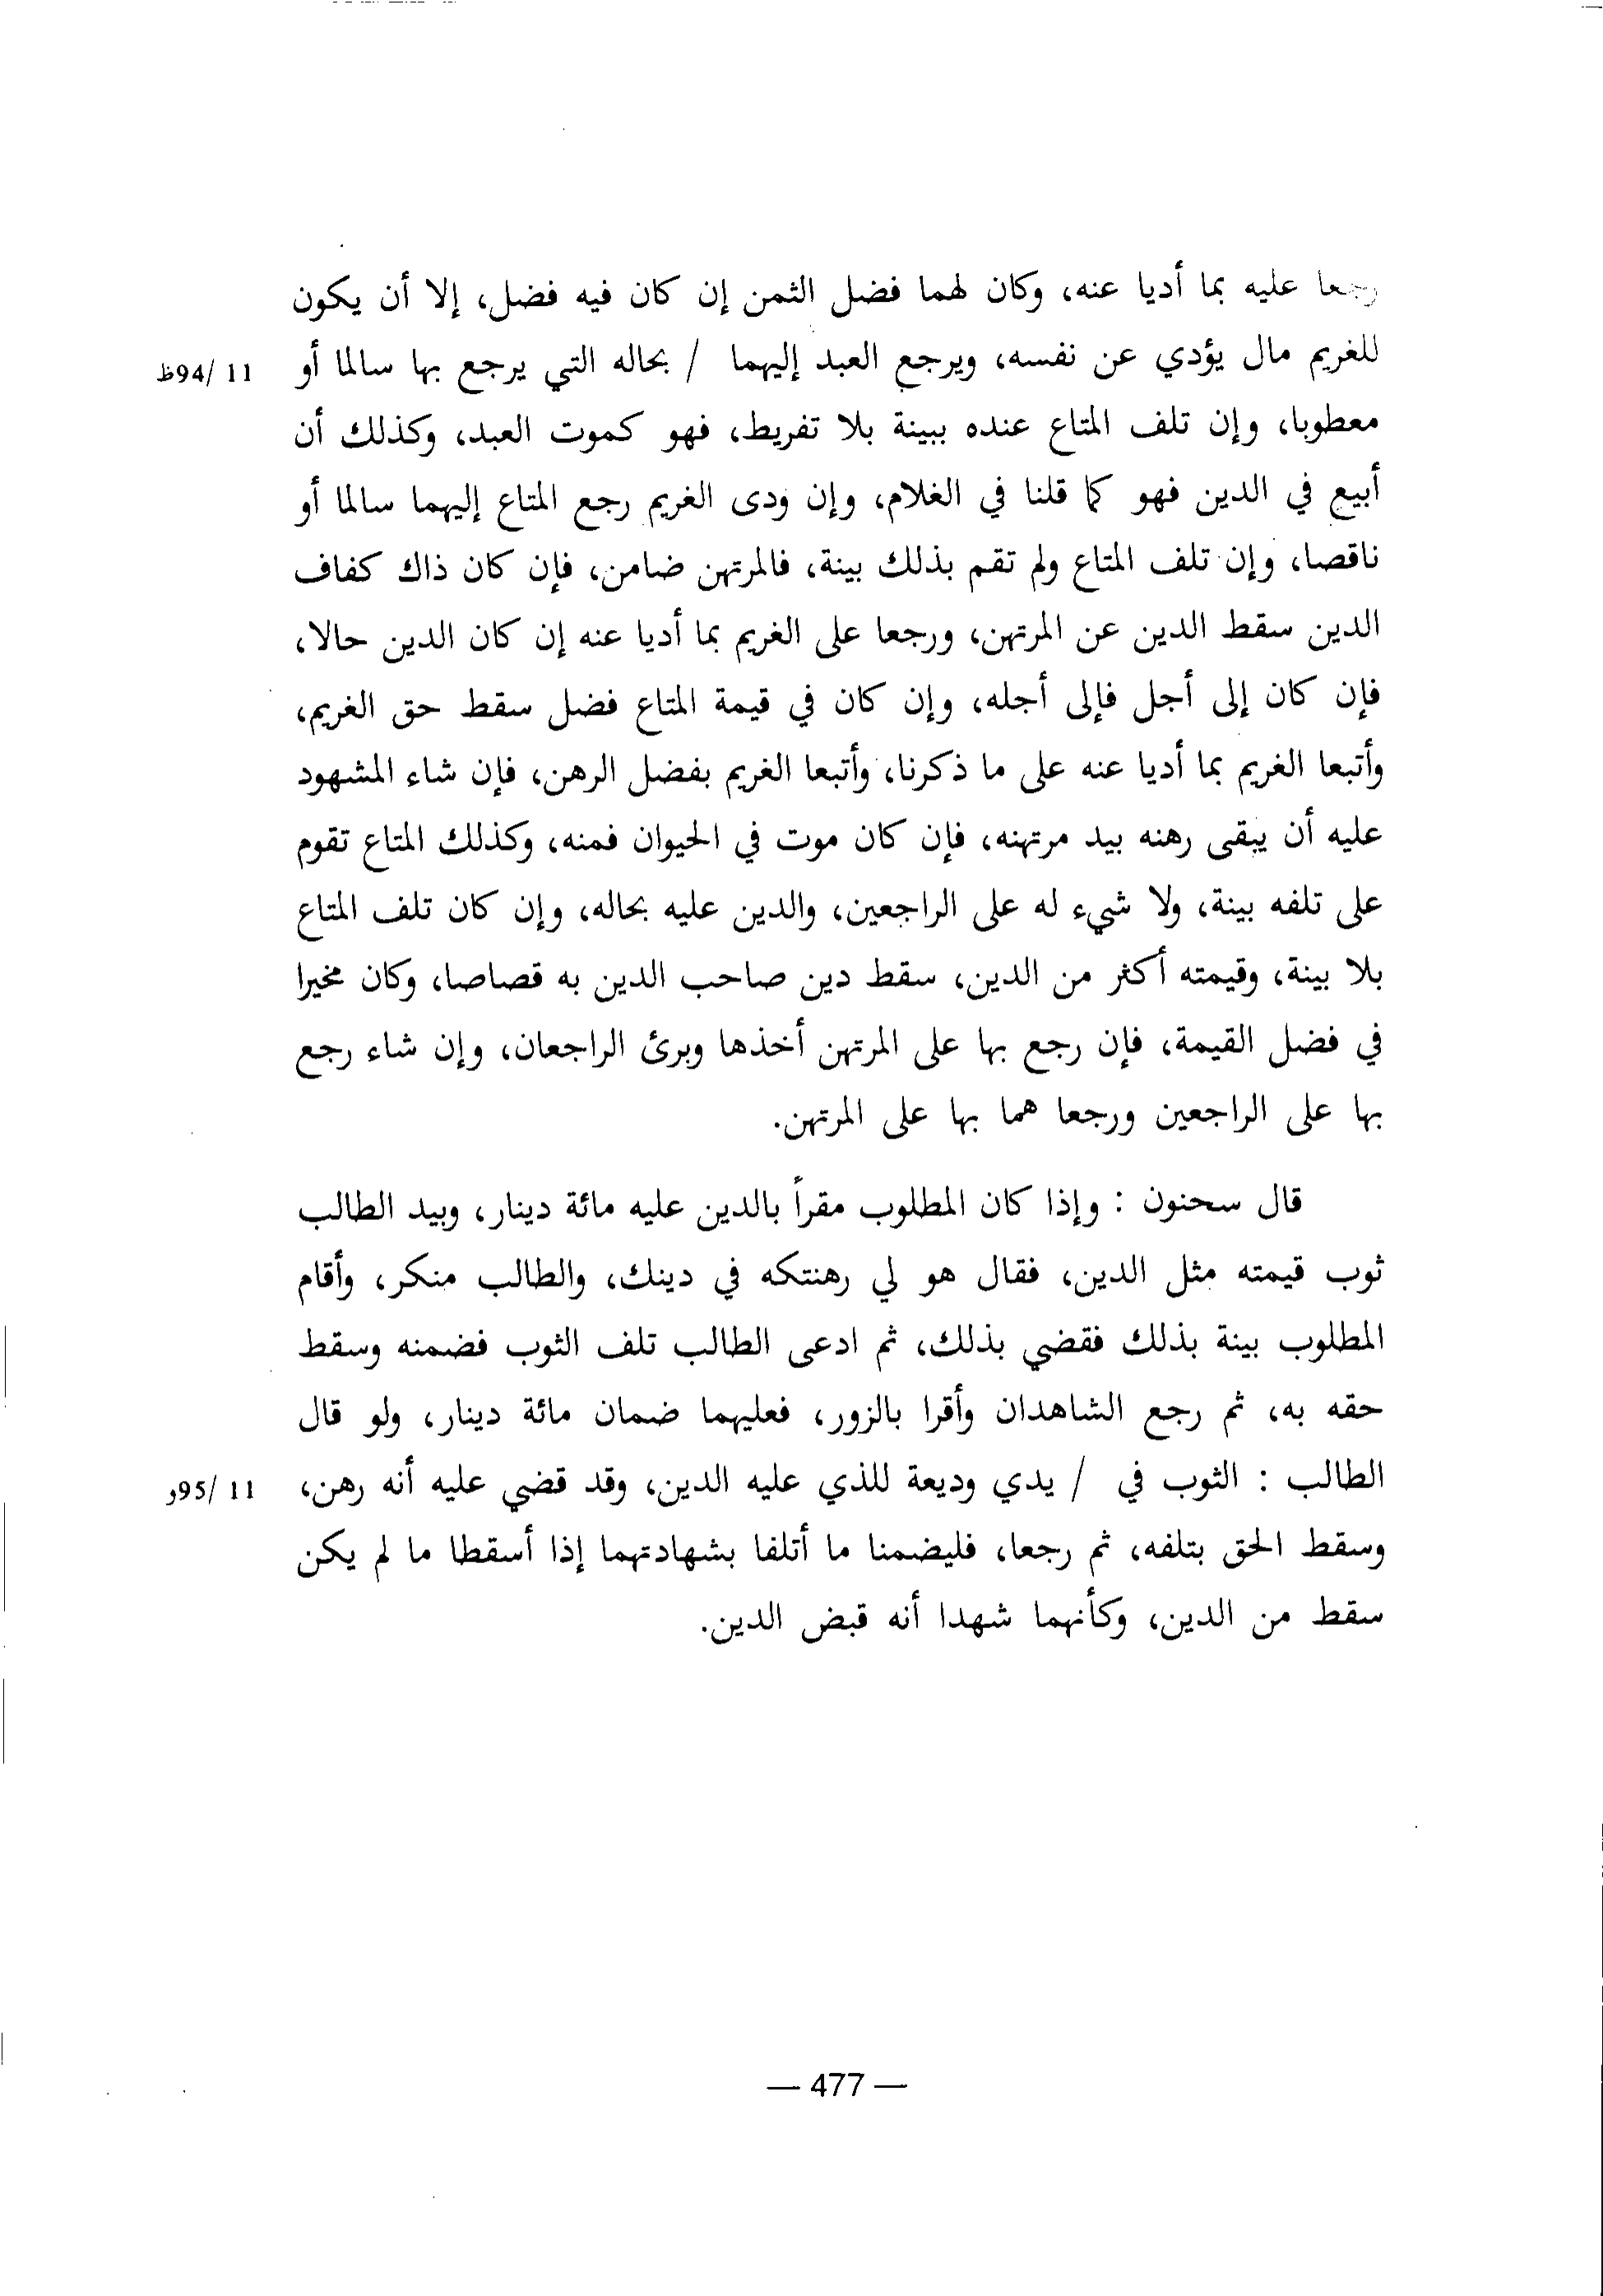 رجعا عليه بما أديا عنه، وكان لهما فضل الثمن إن كان فيه فضل، إلا أن يكون
للغريم مال يؤدي عن نفسه، ويرجع العبد إليهما / بحاله التي يرجع بها سالما أو
11 /94ظ
معطوبا، وإن تلف المتاع عنده ببينة بلا تفريط، فهو كموت العبد، وكذلك أن
أبيع في الدين فهو كما قلنا في الغلام، وإن ودى الغريم رجع المتاع إليهما سالما أو
ناقصا، وإن تلف المتاع ولم تقم بذلك بينة، فالمرتهن ضامن، فإن كان ذاك كفاف
الدين سقط الدين عن المرتهن، ورجعا على الغريم بما أديا عنه إن كان الدين حالا،
فإن كان إلى أجل فإلى أجله، وإن كان في قيمة المتاع فضل سقط حق الغريم،
وأتبعا الغريم بما أديا عنه على ما ذكرنا، وأتبعا الغريم بفضل الرهن، فإن شاء المشهود
عليه أن يبقى رهنه بيد مرتهنه، فإن كان موت في الحيوان فمنه، وكذلك المتاع تقوم
على تلفه بينة، ولا شيء له على الراجعين، والدين عليه بحاله، وإن كان تلف المتاع
بلا بينة، وقيمته أكثر من الدين، سقط دين صاحب الدين به قصاصا، وكان مخيرا
في فضل القيمة، فإن رجع بها على المرتهن أخذها وبرئ الراجعان، وإن شاء رجع
بها على الراجعين ورجعا هما بها على المرتهن.
قال سحنون : وإذا كان المطلوب مقراً بالدين عليه مائة دينار، وبيد الطالب
ثوب قيمته مثل الدين، فقال هو لي رهنتكه في دينك، والطالب منكر، وأقام
المطلوب بينة بذلك فقضي بذلك، ثم ادعى الطالب تلف الثوب فضمنه وسقط
حقه به، ثم رجع الشاهدان وأقرا بالزور، فعليهما ضمان مائة دينار، ولو قال
الطالب : الثوب في / يدي وديعة للذي عليه الدين، وقد قضي عليه أنه رهن،
11 /95و
وسقط الحق بتلفه، ثم رجعا، فليضمنا ما أتلفا بشهادتهما إذا أسقطا ما لم يكن
سقط من الدين، وكأنهما شهدا أنه قبض الدين.
— 477 —